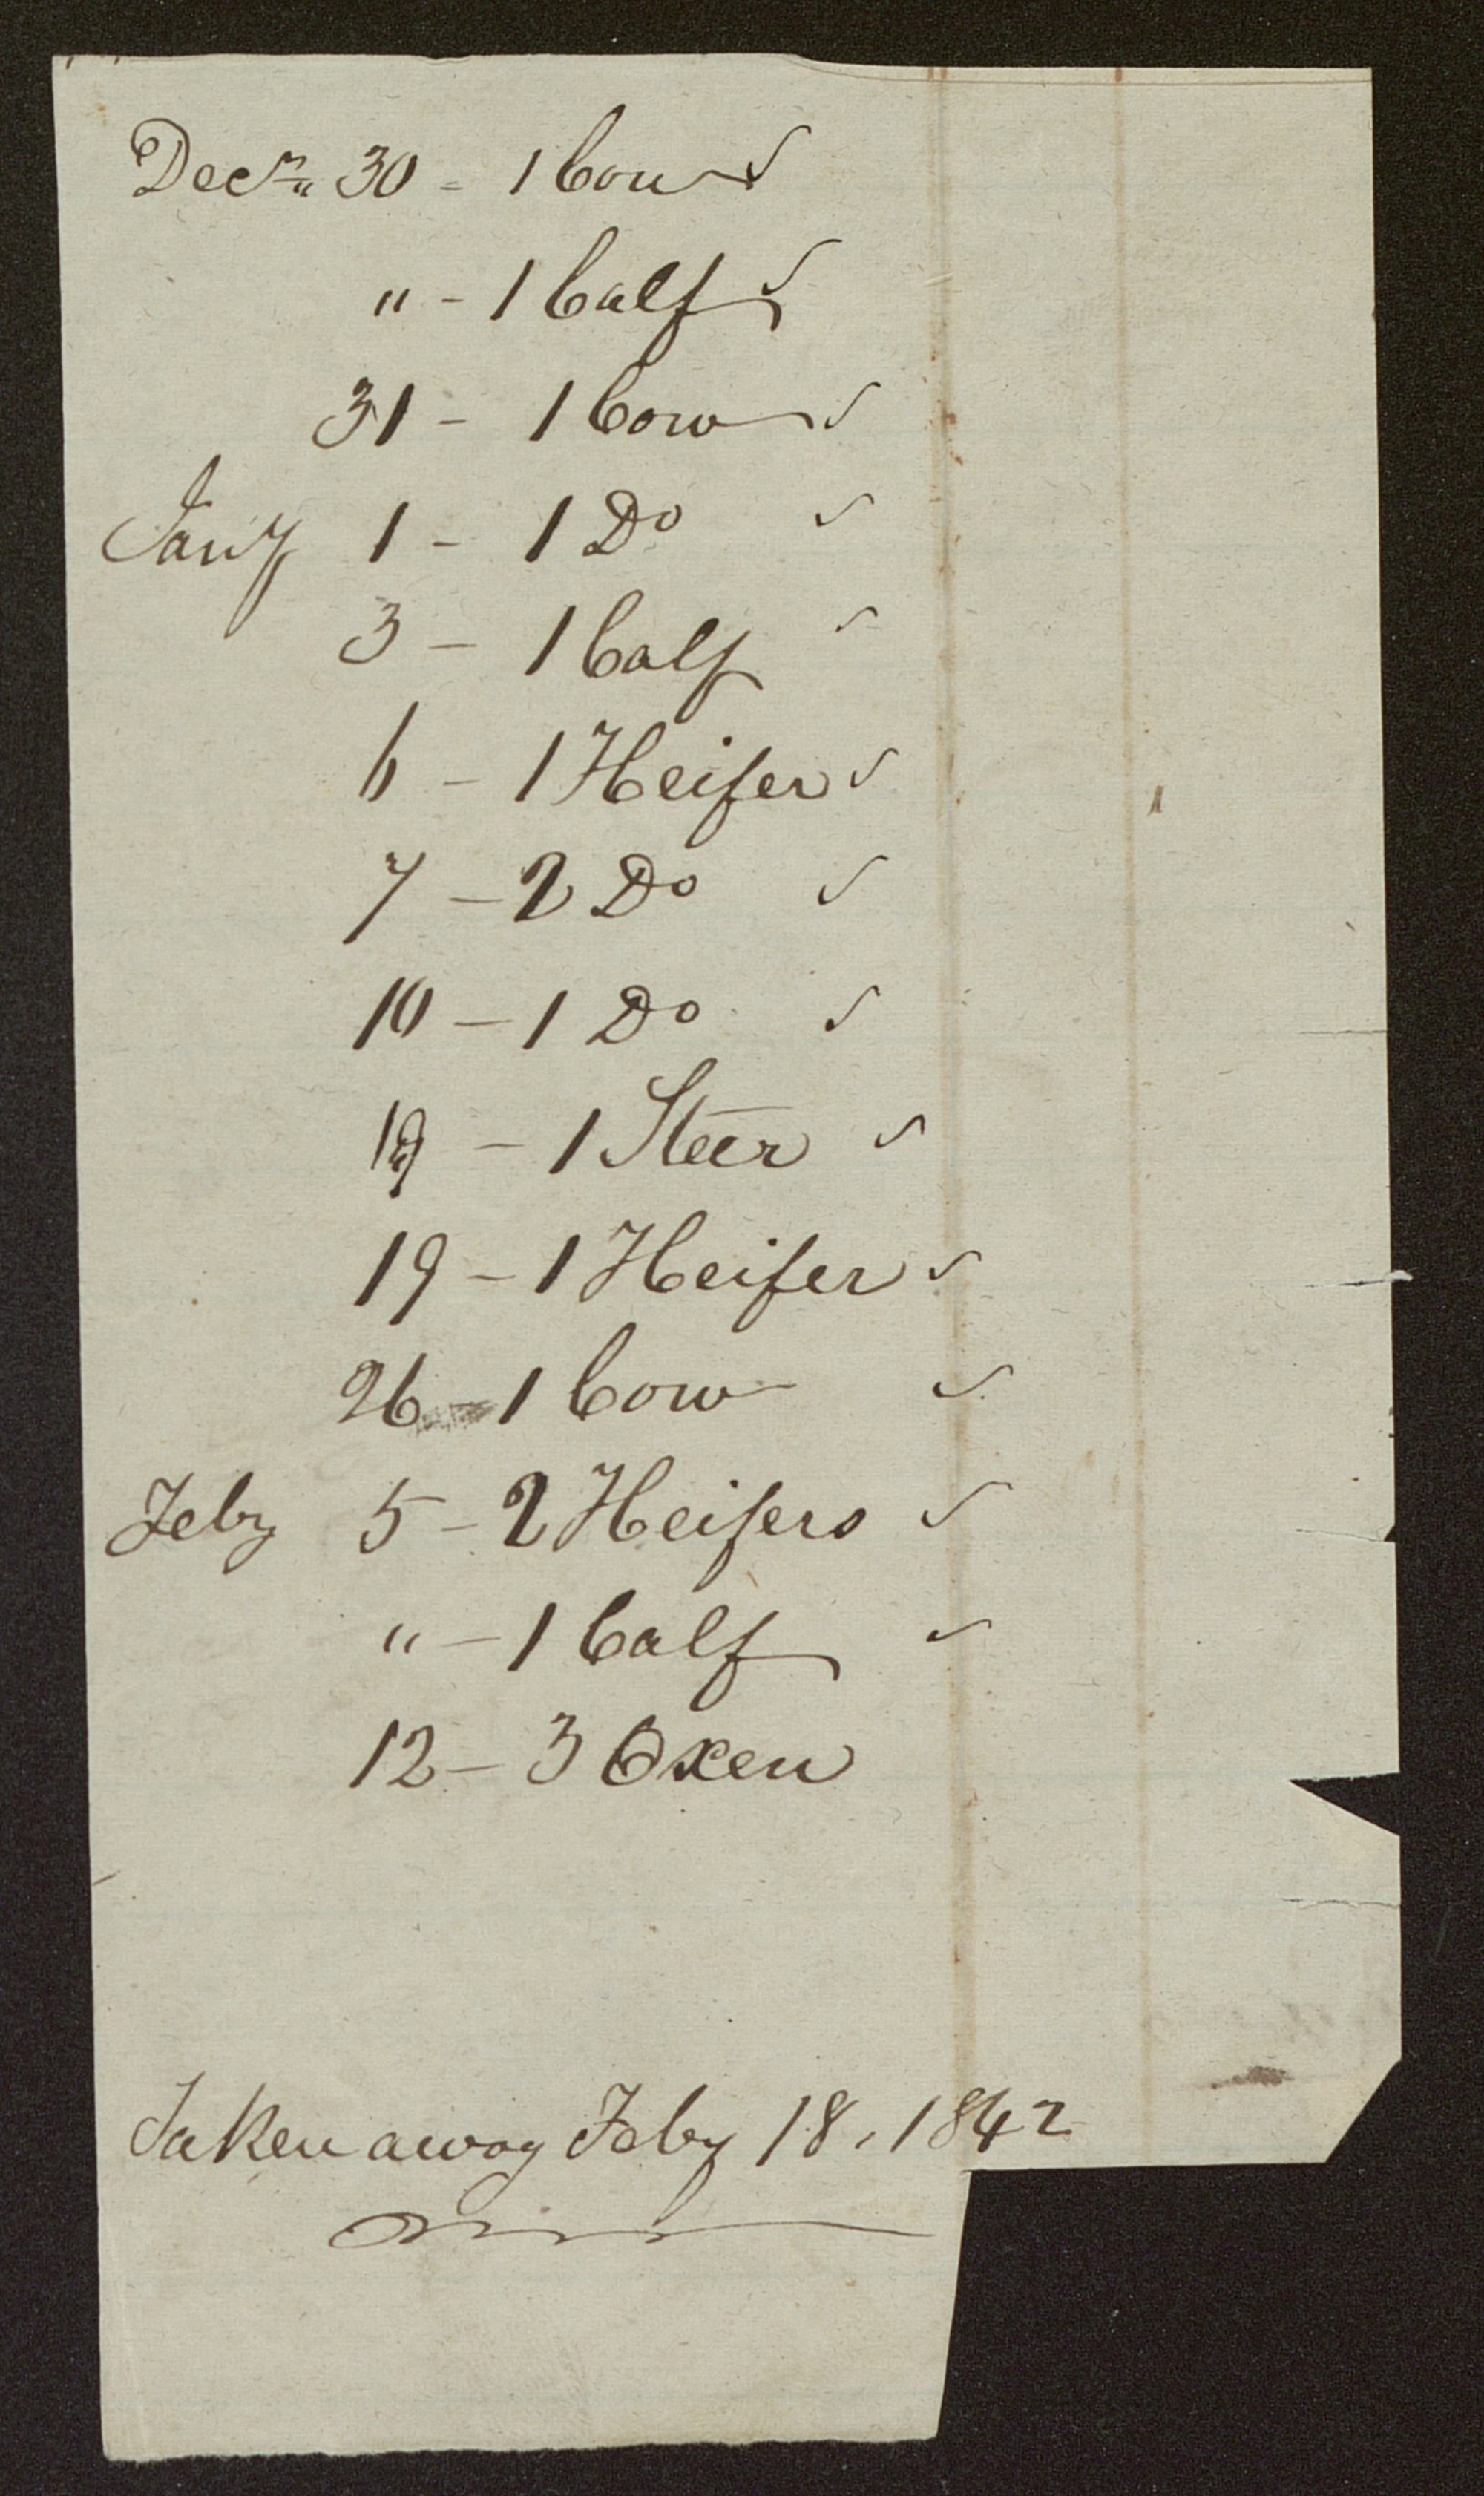 Decr" 30 - 1 Cow ✓
" - 1 Calf ✓
31 - 1 Cow ✓
Jany 1 - 1 Do ✓
3 - 1 Calf ✓
6 - 1 Heifer ✓
7 - 2 Do ✓
10 - 1 Do ✓
- 1 Steer ✓
19 - 1 Heifer ✓
26 - 1 Cow ✓
Feby 5 - 2 Heifers ✓
" - 1 Calf ✓
12 - 3 Oxen
Taken away Feby 18, 1842